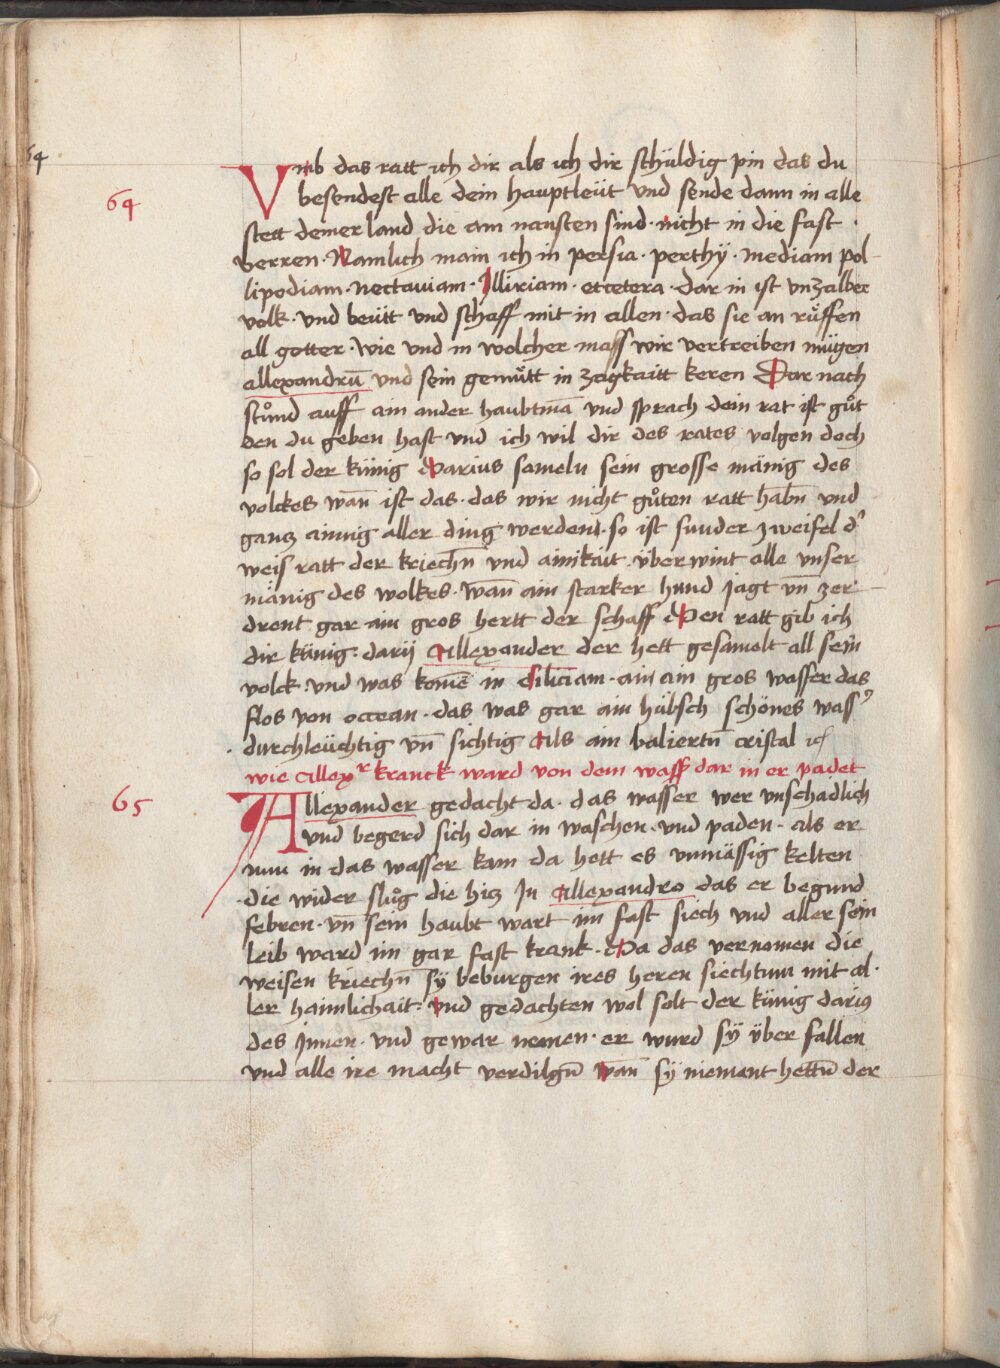 64
Vmb das ratt ich dir als ich dir schüldig pin das du
64
besendest alle dein hauptleüt vnd sende dann in alle
stett deiner land die am nansten sind · nicht in die fast ·
verren · Namlich main ich in persia · perthÿ · mediam pol-
lipodiam · nectauiam · Jlliriam · etcetera · dar in ist vnzalber
volk · vnd beütt vnd schaff mit in allen · das sie an rüffen
all gotter · wie vnd in wolcher mass wir vertreiben mügen
allexandrū vnd sein gemütt in zagkaitt keren Dar nach
stůnd auff ain ander haubtmā vnd sprach dein rat ist gůt
den du geben hast vnd ich wil dir des rates volgen doch
so sol der künig Darius sameln sein grosse mänig des
volckes wan̄ ist das · das wir nicht gůten ratt habn̄ vnd
ganz ainnig aller ding werden · so ist sunder zweifel d'
weis ratt der kriechn̄ vnd ainikait über wint alle vnser
mänig des wolkes · wan̄ ain starker hund jagt vn̄ zer-
drent gar ain gros hertt der schaff Den ratt gib ich
dir künig · darij Allexander der hett gesamelt all sein
volck · vnd was komē in Ciliciam · ain ain gros wasser das
flos von occean · das was gar ain hübsch schönes wass'
· durchleüchtig vn̄ sichtig Als ain baliertn̄ cristal ⁊c
wie Allexʳ kranck ward von dem wass' dar in er padet
65
Allexander gedacht da · das wasser wer vnschadlich
vnd begerd sich dar in waschen · vnd paden · als er
nun in das wasser kam da hett es vnmässig kelten
· die wider slůg die hiz Jn Allexandro das er begund
febren · vn̄ sein haubt wart im fast siech vnd aller sein
leib ward im gar fast krank · Da das vernomen die
weisen kriechn̄ sÿ beburgen ires heren siechtum mit al·
ler haimlichait · vnd gedachten wol solt der künig darius
des Jnnen · vnd gewar nemen · er wurd sÿ über fallen
vnd alle ire macht verdilgn̄ wan̄ sÿ niement hettn̄ der